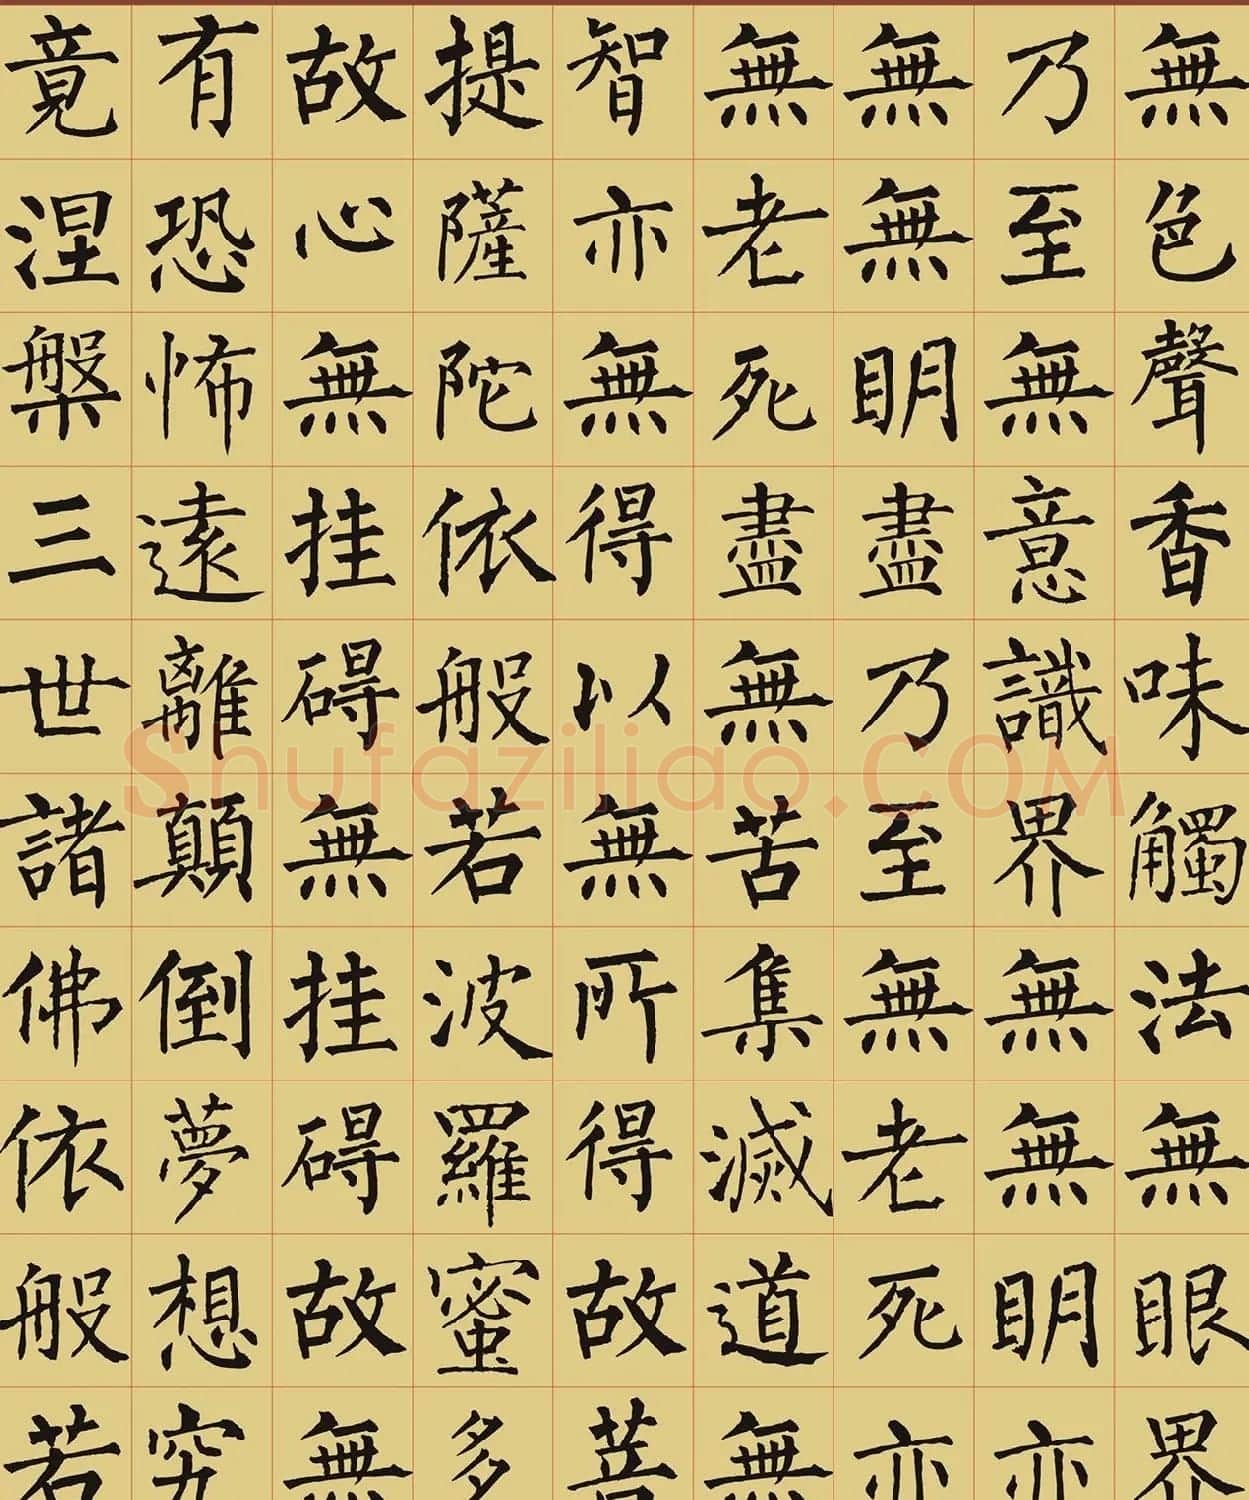 無色聲香味觸法無無眼界
乃至無意識界無無明亦
無無明盡乃至無老死亦
無老死盡無苦集滅道無
智亦無得以無所得故菩
提薩陀依般若波羅蜜多
故心無挂碍無挂碍故無
有恐怖遠離顛倒夢想究
竟涅槃三世諸佛依般若
Shufaziliao.COM